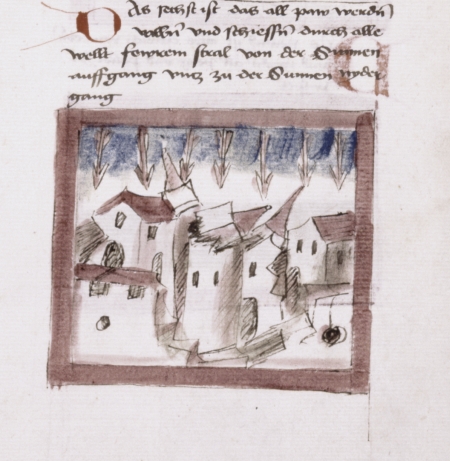 Das sechst ist das all paw werdn̄
valln̄ vnd schiessn̄ durch alle
wellt fewrein stral von der Sunnen
auffgang vncz zu der Sunnen nyder
gang